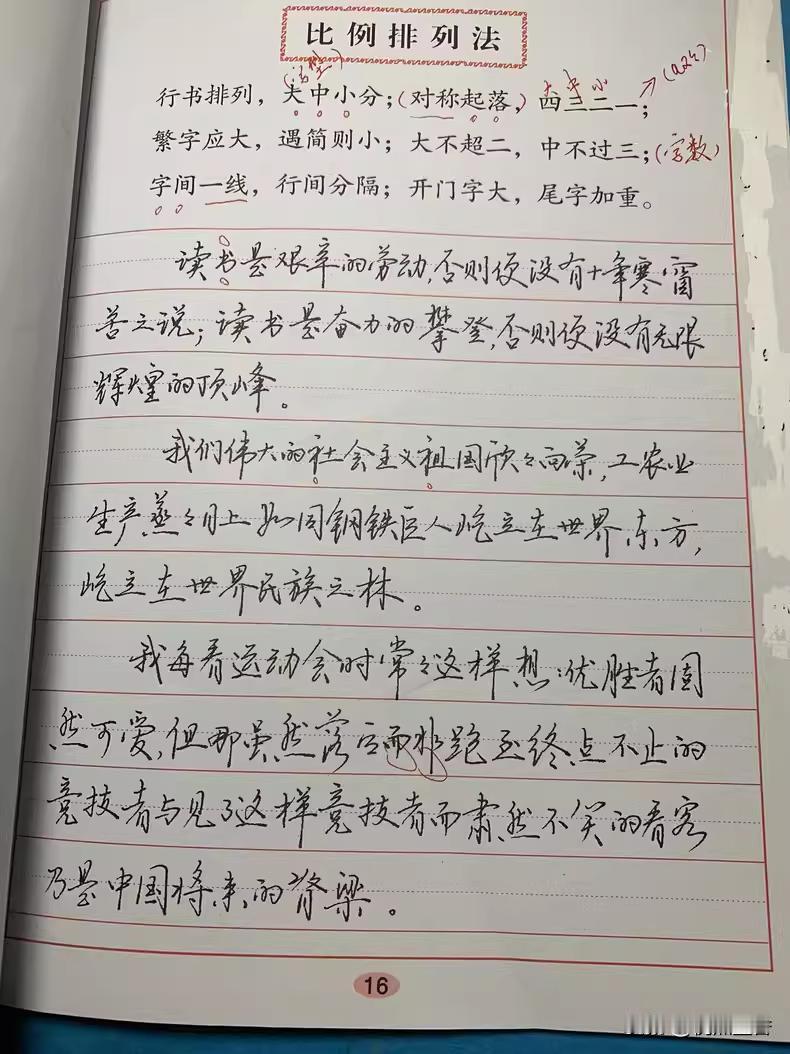 比例排列法
行书排列，大中小分；(对称起落，)四三二一；
大 中 小
繁字应大，遇简则小；大不超二，中不过三；(字数)
字间一线，行间分隔；开门字大，尾字加重。
读书是艰辛的劳动，否则便没有十年寒窗
苦之说；读书是奋力的攀登，否则便没有无限
辉煌的顶峰。
我们伟大的社会主义祖国欣々向荣，工农业
生产蒸々日上如同钢铁巨人屹立在世界东方，
屹立在世界民族之林。
我每看运动会时常々这样想：优胜者固
然可爱，但那虽然落后而非跑至终点不止的
竞技者与见了这样竞技者而肃然不笑的看客
乃是中国将来的脊梁。
16